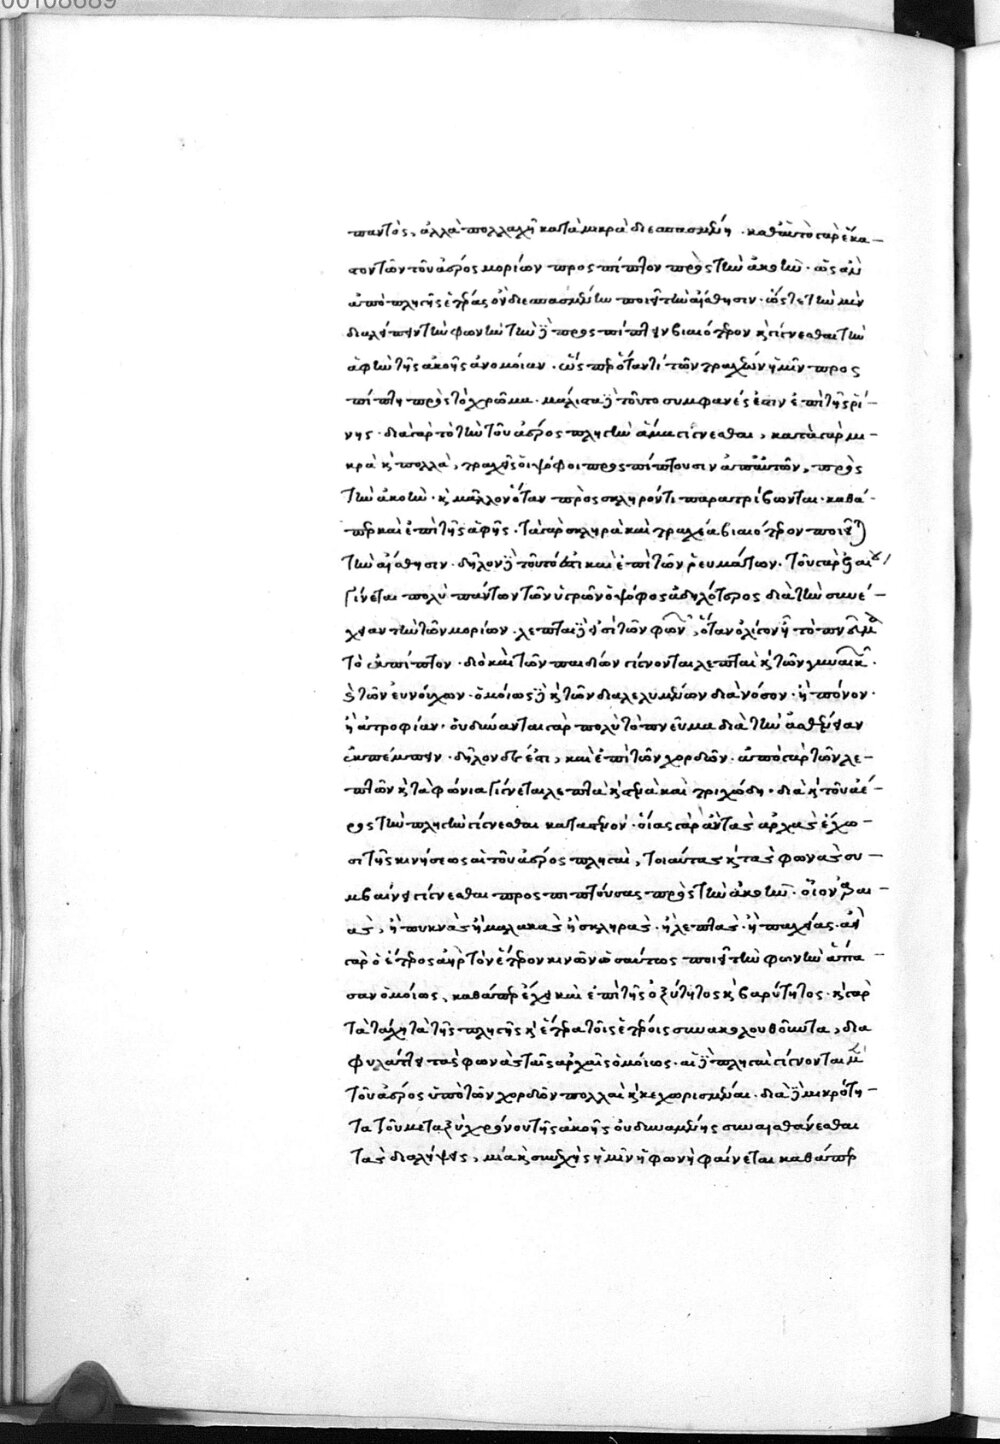 00108689
παντὸς, ἀλλὰ πολλαχῇ κατὰ μικρὰ διεσπασμένη. καθ' αὑτὸ γὰρ ἕκα-
στον τῶν τοῦ ἀέρος μορίων προσπίπτον πρὸς τὴν ἀκοὴν. ὡς ἂν
ἀπὸ πληγῆς ἑτέρας οὐ διεσπασμένην ποιεῖ τὴν αἴσθησιν. ὥστε τὴν μὲν
διαλείπειν τὴν φωνὴν τὴν δὲ προσπίπτειν βιαιότερον κ γίνεσθαι τὴν
ἁφὴν τῆς ἀκοῆς ἀνομοίαν. ὥσπερ ὅταν τι τῶν τραχέων ἡμῖν προσ
πίπτη πρὸς τὸ χρῶμα. μάλιστα δὲ τοῦτο συμφανές ἐστιν ἐπὶ τῆς ῥί-
νης. διὰ γὰρ τὸ τὴν τοῦ ἀέρος πληγὴν ἅμα γίνεσθαι, κατὰ γὰρ μι-
κρὰ κ πολλὰ, τραχεῖς οἱ ψόφοι προσπίπτουσιν ἀπ' αὐτῶν, πρὸς
τὴν ἀκοὴν. κ μᾶλλον ὅταν πρὸς σκληρόν τι παρατρίβωνται. καθά-
περ καὶ ἐπὶ τῆς ἁφῆς. τὰ γὰρ σκληρὰ καὶ τραχέα βιαιότερον ποιεῖται
τὴν αἴσθησιν. δῆλον δὲ τοῦτό ἐστι καὶ ἐπὶ τῶν ῥευμάτων. τοῦ γὰρ ἐλαίου
γίνεται πολὺ πάντων τῶν ὑγρῶν ὁ ψόφος ἀδηλότερος διὰ τὴν συνέ-
χειαν τὴν τῶν μορίων. λεπταὶ δ' εἰσὶ τῶν φων, ὅταν ὀλίγον ᾖ τὸ πνεῦμα
τὸ ἐκπίπτον. διὸ καὶ τῶν παιδίων γίνονται λεπταὶ κ τῶν γυναικῶν.
κ τῶν εὐνούχων. ὁμοίως δὲ κ τῶν διαλελυμένων διὰ νόσον. ἢ πόνον.
ἢ ἀτροφίαν. οὐ δύνανται γὰρ πολὺ τὸ πνεῦμα διὰ τὴν ἀσθένειαν
ἐκπέμπειν. δῆλον δέ ἐστι, καὶ ἐπὶ τῶν χορδῶν. ἀπὸ γὰρ τῶν λε-
πτῶν κ τὰ φώνια γίνεται λεπτὰ κ στενὰ καὶ τριχώδη. διὰ κ τοῦ ἀέ-
ρος τὴν πληγὴν γίνεσθαι κατὰ στενόν. οἵας γὰρ ἂν τὰς ἀρχὰς ἔχω-
σι τῆς κινήσεως αἱ τοῦ ἀέρος πληγαὶ, τοιαύτας κ τὰς φωνὰς συ-
μβαίνει γίνεσθαι προσπιπτούσας πρὸς τὴν ἀκοὴν. οἷον ἀραι-
ὰς, ἢ πυκνὰς ἢ μαλακὰς ἢ σκληρὰς. ἢ λεπτὰς. ἢ παχείας. ἀεὶ
γὰρ ὁ ἕτερος ἀὴρ τὸν ἕτερον κινῶν ὡσαύτως ποιεῖ τὴν φωνὴν ἅπα-
σαν ὁμοίως, καθάπερ ἔχει καὶ ἐπὶ τῆς ὀξύτητος κ βαρύτητος. κ γὰρ
τὰ τάχη τὰ τῆς πληγῆς κ ἕτερα τοῖς ἑτέροις συνακολουθοῦντα, δια
φυλάττει τὰς φωνὰς ταῖς ἀρχαῖς ὁμοίως. αἱ δὲ πληγαὶ γίνονται μὲν
τοῦ ἀέρος ὑπὸ τῶν χορδῶν πολλαὶ κ κεχωρισμέναι. διὰ δὲ μικρότη-
τα τοῦ μεταξὺ χρόνου τῆς ἀκοῆς οὐ δυναμένης συναισθάνεσθαι
τὰς διαλείψεις, μία κ συνεχὴς ἡμῖν ἡ φωνὴ φαίνεται καθάπερ